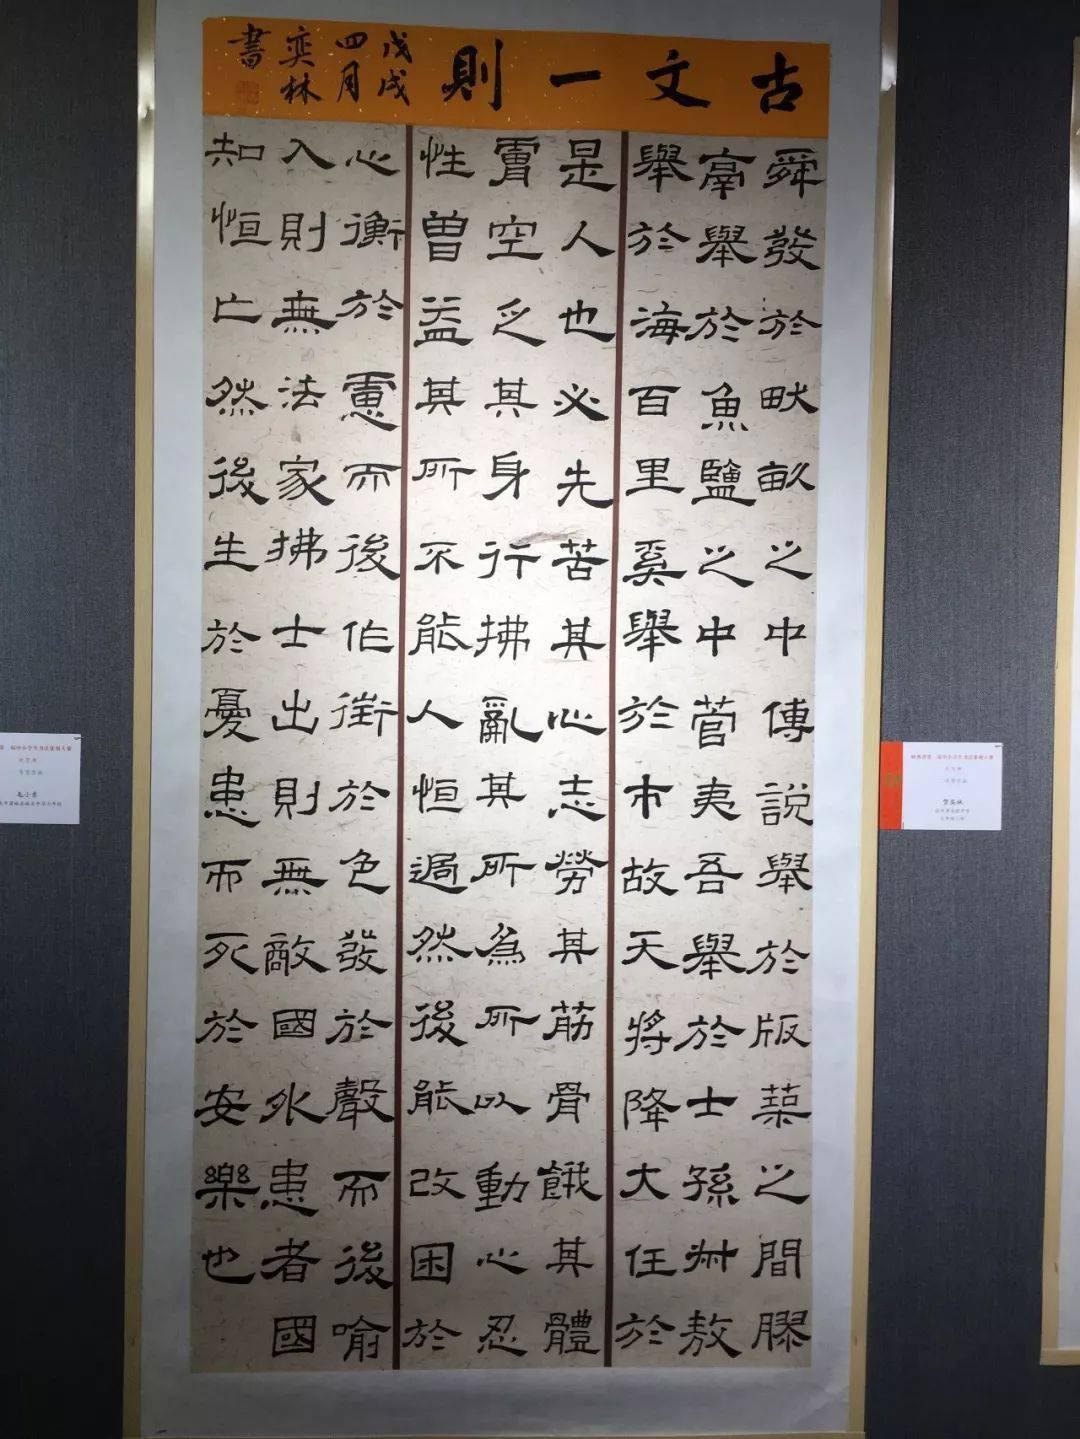 古文一則
戊戌
四月
奕林
書
舜發於畎畝之中傅說舉於版築之間膠
鬲舉於魚鹽之中菅夷吾舉於士孫叔敖
舉於海百里奚舉於市故天將降大任於
是人也必先苦其心志勞其筋骨餓其體
膚空乏其身行拂亂其所為所以動心忍
性曾益其所不能人恒過然後能改困於
心衡於慮而後作徵於色發於聲而後喻
入則無法家拂士出則無敵國外患者國
知恒亡然後生於憂患而死於安樂也
届中小学生书法篆刻大赛
届中小学生书法篆刻大赛